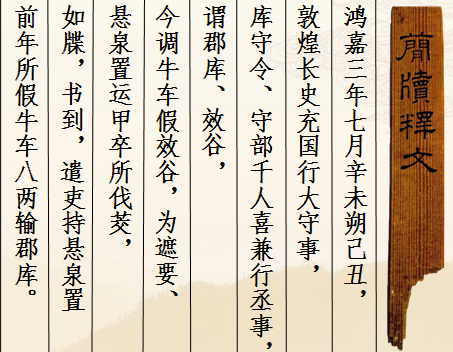 簡牘釋文
鸿嘉三年七月辛未朔己丑，
敦煌长史充国行大守事，
库守令、守部千人喜兼行丞事，
谓郡库、效谷，
今调牛车假效谷，为遮要、
悬泉置运甲卒所伐茭，
如牒，书到，遣吏持悬泉置
前年所假牛车八两输郡库。